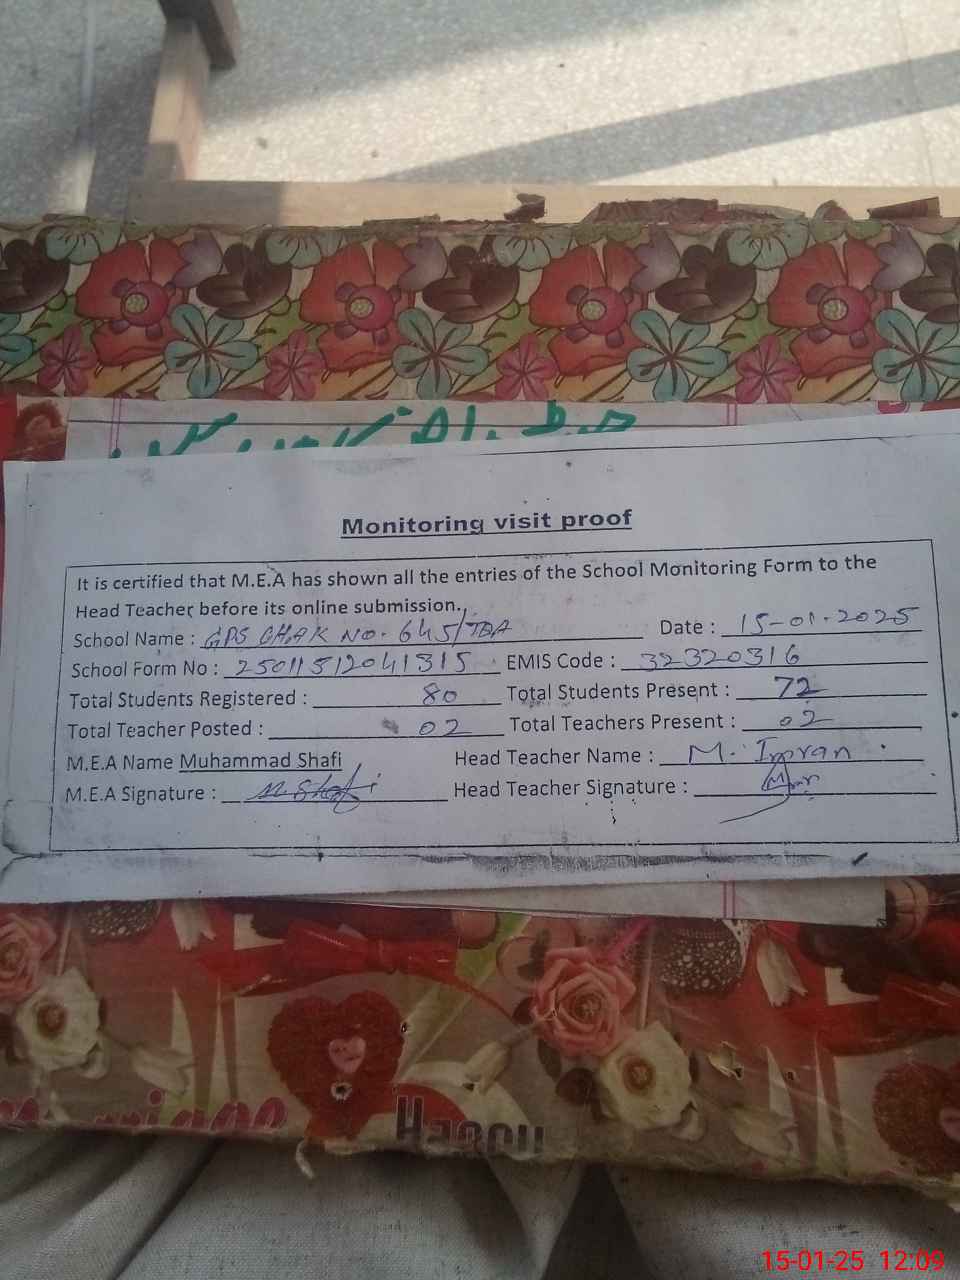 Monitoring visit proof
It is certified that M.E.A has shown all the entries of the School Monitoring Form to the
Head Teacher before its online submission.
School Name : GPS CHAK NO. 645/TDA Date : 15-01-2025
School Form No : 25011512041315 EMIS Code : 32320316
Total Students Registered : 80 Total Students Present : 72
Total Teacher Posted : 02 Total Teachers Present : 02
M.E.A Name Muhammad Shafi Head Teacher Name : M. Imran
M.E.A Signature : M. Shafi Head Teacher Signature :
Happy
15-01-25 12:09